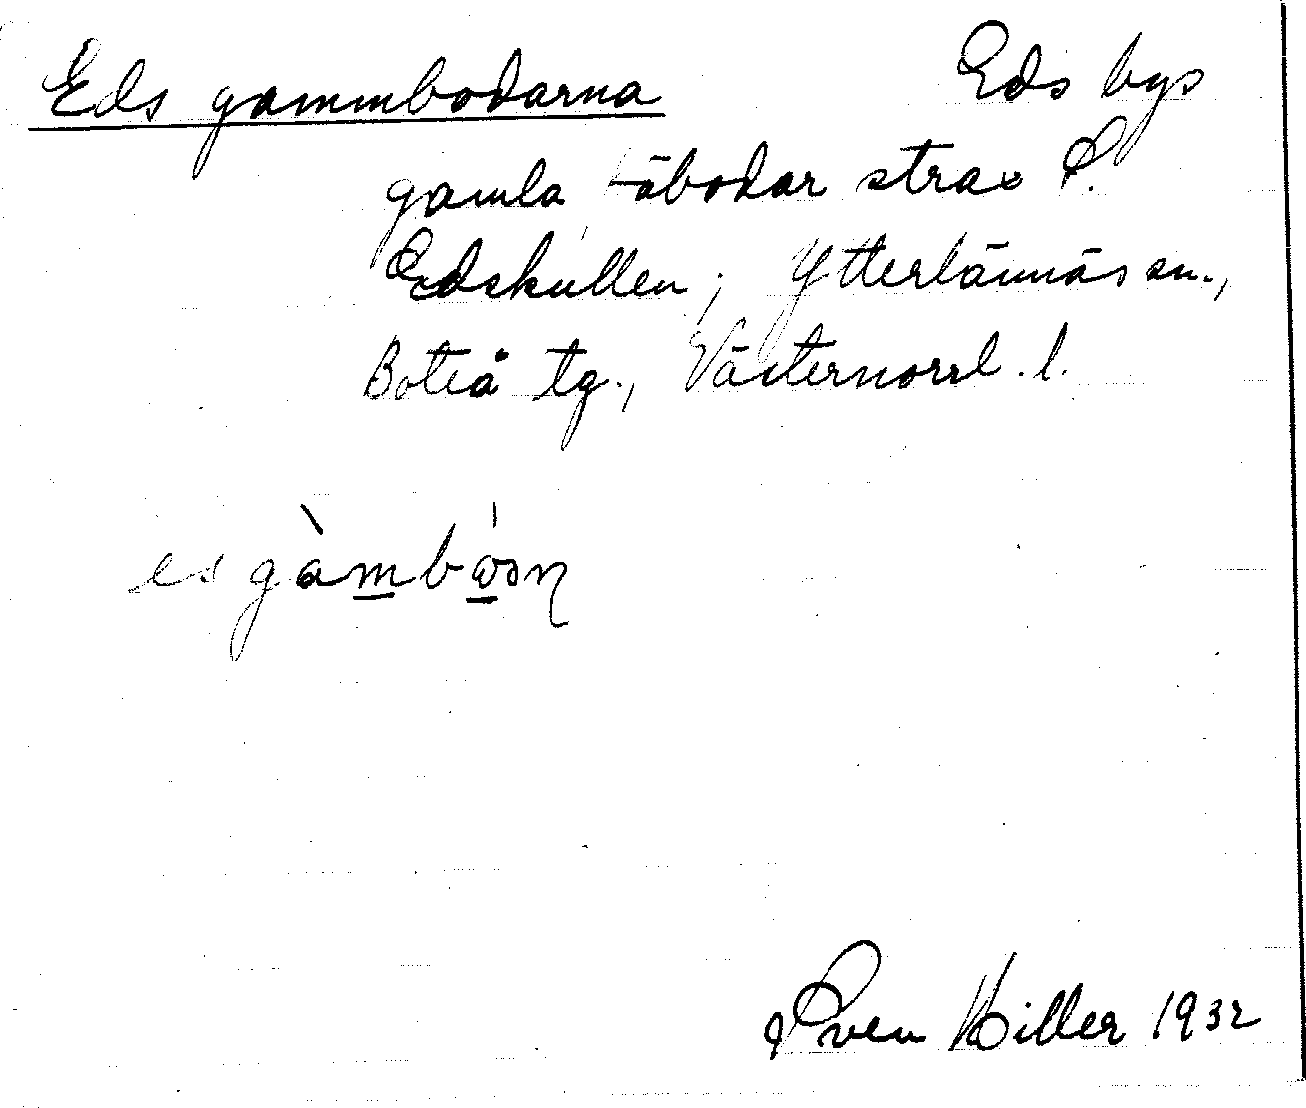 Eds gammbodarna Eds bys
gamla fäbodar strax S.
Edskullen; Ytterlännäs sn.,
Boteå tg., Västernorrl. l.
es gàmbósn
Sven Hiller 1932